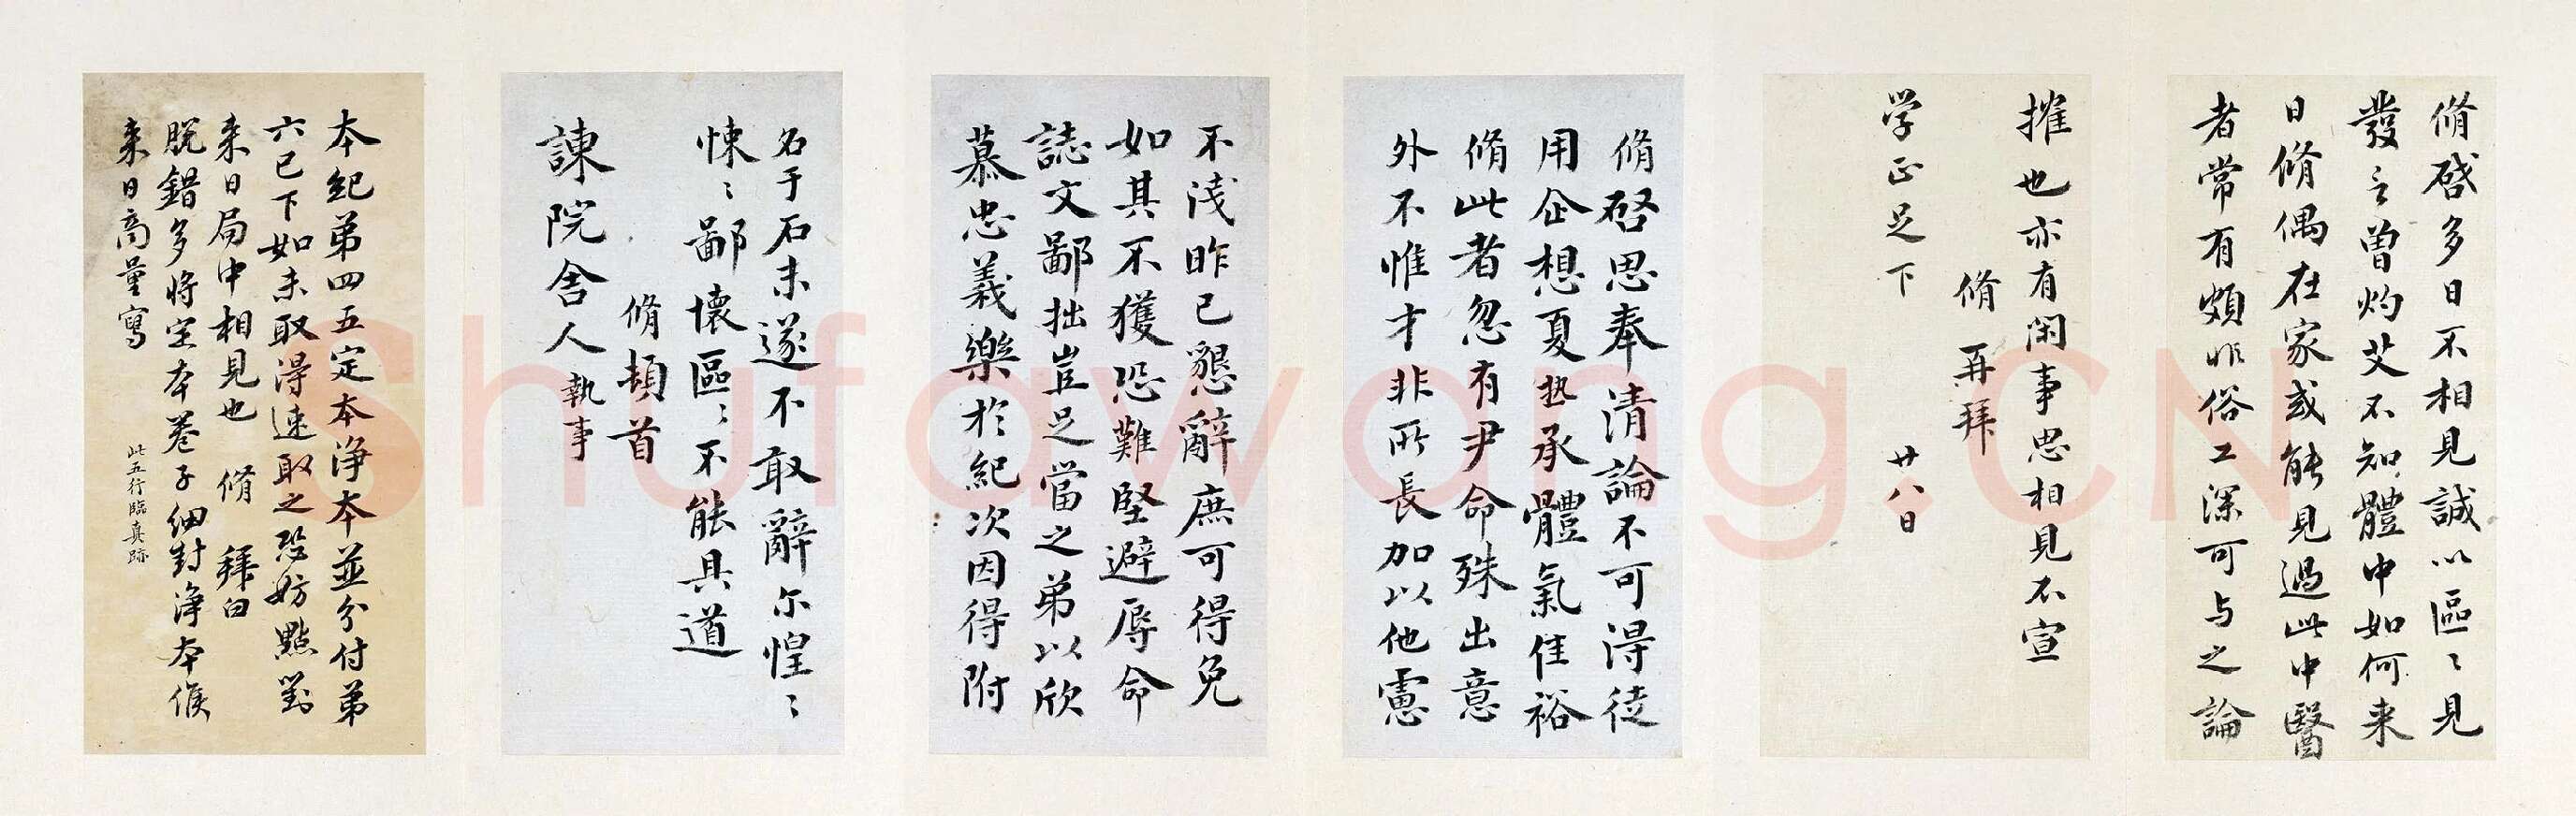 脩啓多日不相見誠以區〻見
發言曾灼艾不知體中如何来
日脩偶在家或能見過此中醫
者常有頗非俗工深可与之論
摧也亦有閑事思相見不宣
脩 再拜
学正足下 廿八日
脩啓思奉清論不可得徒
用企想夏熱承體氣佳裕
脩此者忽有尹命殊出意
外不惟才非所長加以他慮
不淺昨已懇辭庶可得免
如其不獲恐難堅避辱命
誌文鄙拙豈足當之弟以欣
慕忠義樂於紀次因得附
名于石未遂不敢辭尔惶〻
悚〻鄙懷區〻不能具道
脩頓首
諫院舍人執事
本紀弟四五定本浄本並分付弟
六已下如未取得速取之恐妨點對
来日局中相見也 脩 拜白
脱錯多將定本卷子細對浄本候
来日商量寫
此五行臨真跡
Shufawang.CN